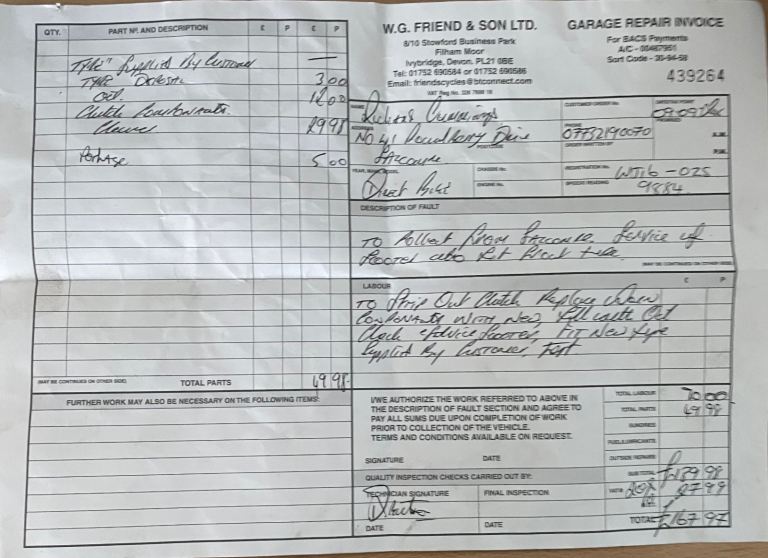 QTY. PART Nº. AND DESCRIPTION £ P £ P
TYRE Supplied By Customer —
TYRE Disposal 3.00
Oil 12.00
Clutch Componants
Cleaner 29.98
Postage 5.00
(MAY BE CONTINUED ON OTHER SIDE) TOTAL PARTS 49.98
FURTHER WORK MAY ALSO BE NECESSARY ON THE FOLLOWING ITEMS:
W.G. FRIEND & SON LTD.
8/10 Stowford Business Park
Filham Moor
Ivybridge, Devon. PL21 0BE
Tel: 01752 690584 or 01752 690586
Email: friendscycles@btconnect.com
GARAGE REPAIR INVOICE
For BACS Payments
439264
NAME
CUSTOMER ORDER No.
ADDRESS No 41 Drive
PHONE 07752190070
A.M.
P.M.
POSTCODE
YEAR, MAKE, MODEL Direct Bikes
CHASSIS No.
ENGINE No.
REGISTRATION No.
SPEEDO READING 9884
DESCRIPTION OF FAULT
TO Collect From Service of
Scooter also fit
(MAY BE CONTINUED ON OTHER SIDE)
LABOUR £ P
TO Strip Out Clutch Replace
COMPONANTS WITH NEW, Oil
Check Service Scooter, FIT New Tyre
Supplied By Customer, Test
I/WE AUTHORIZE THE WORK REFERRED TO ABOVE IN
THE DESCRIPTION OF FAULT SECTION AND AGREE TO
PAY ALL SUMS DUE UPON COMPLETION OF WORK
PRIOR TO COLLECTION OF THE VEHICLE.
TERMS AND CONDITIONS AVAILABLE ON REQUEST.
SIGNATURE DATE
TOTAL LABOUR 90.00
TOTAL PARTS 49.98
SUNDRIES
FUEL/LUBRICANTS
OUTSIDE REPAIRS
SUB TOTAL £139.98
VAT @ 20% 27.99
TOTAL £167.97
QUALITY INSPECTION CHECKS CARRIED OUT BY:
TECHNICIAN SIGNATURE FINAL INSPECTION
DATE DATE